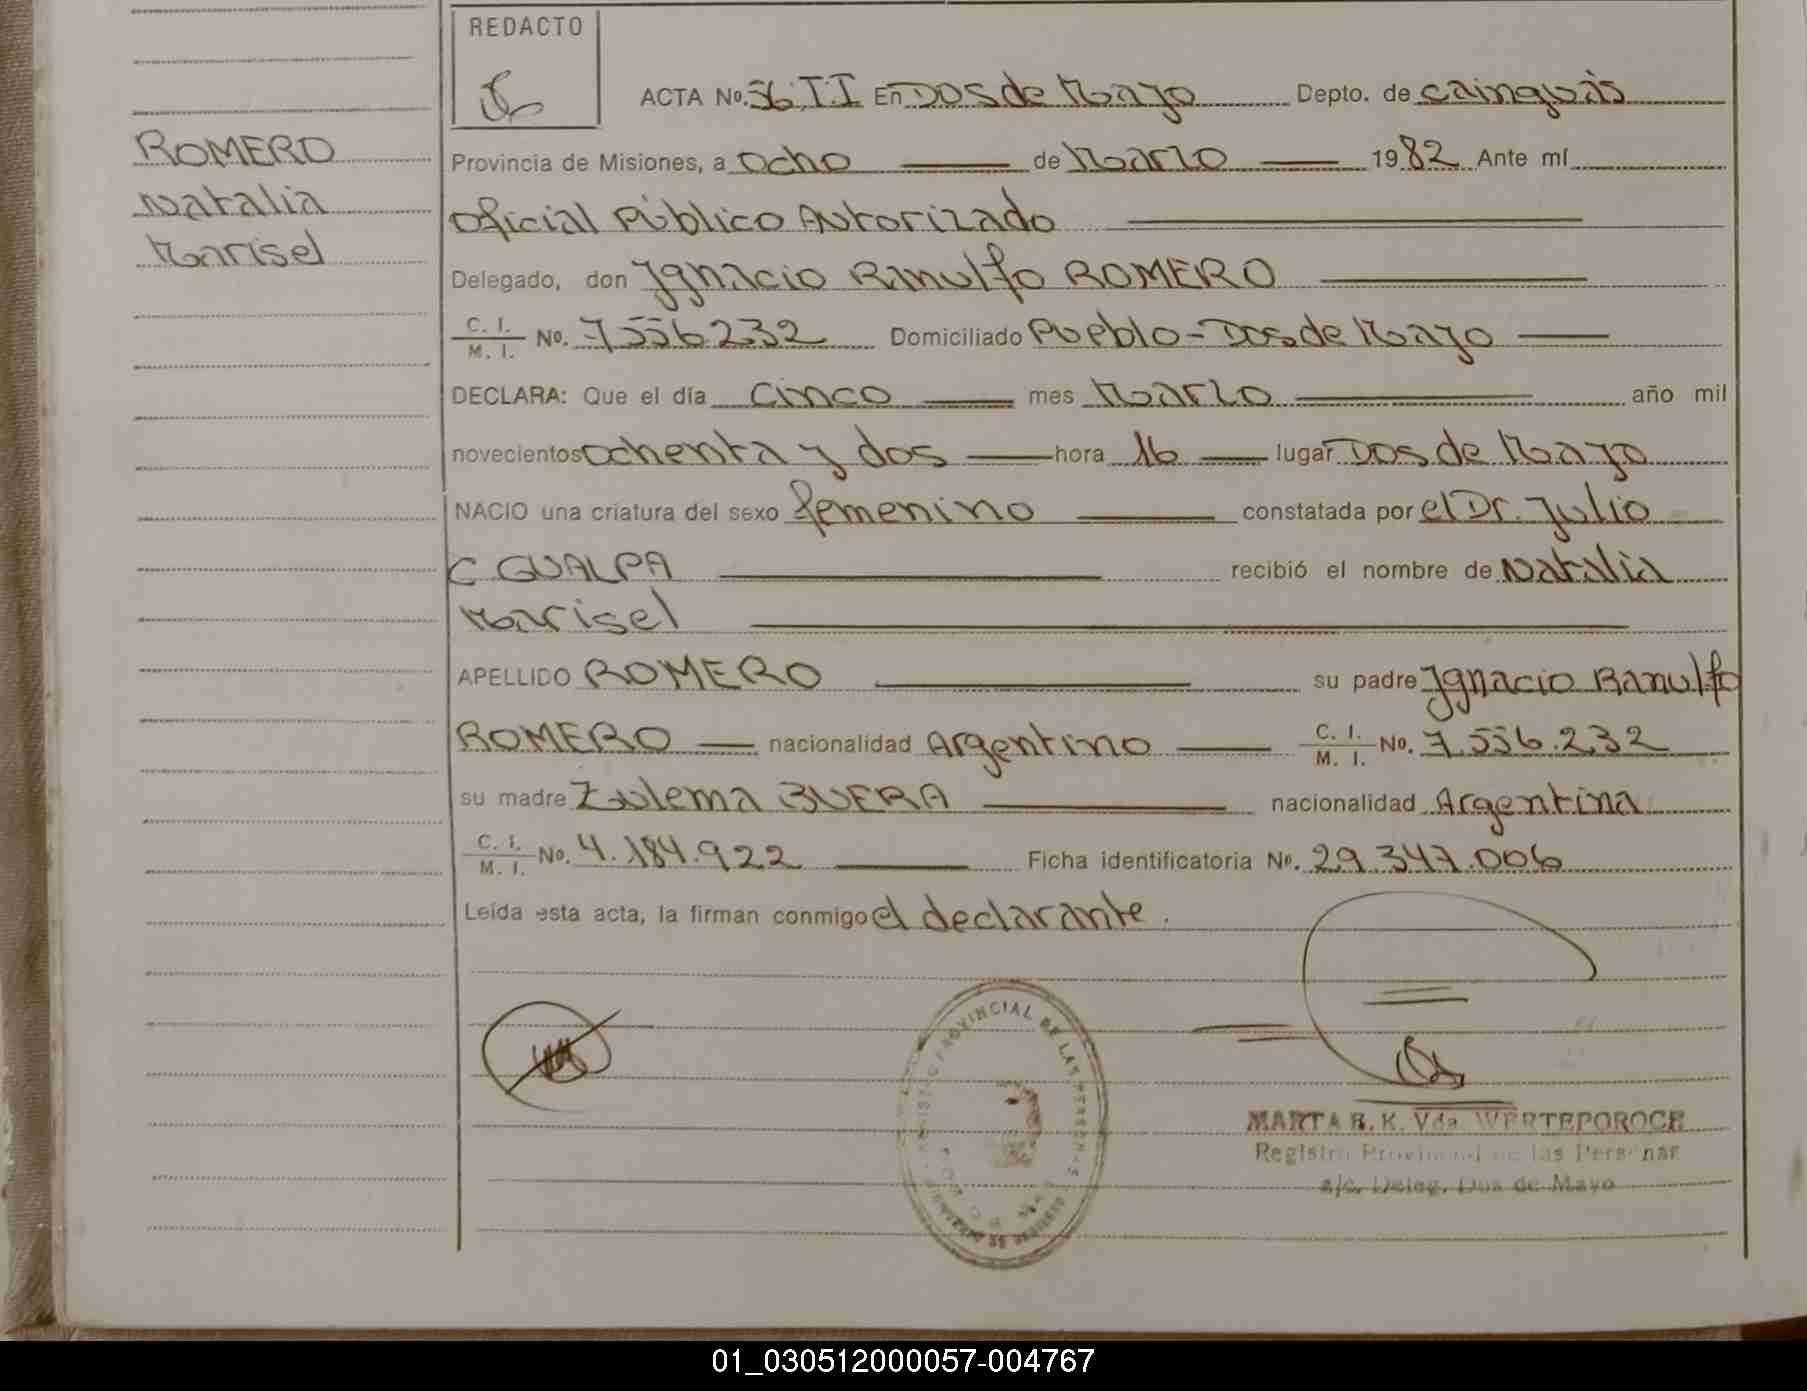 REDACTO
ACTA No. 56 II En Dos de Mayo Depto. de Cainguás
ROMERO
Natalia
Marisel
Provincia de Misiones, a ocho de Marzo 1982 Ante mí
Oficial Público Autorizado
Delegado, don Ignacio Ranulfo ROMERO
C. I. M. I. No. 7.556.232 Domiciliado Pueblo-Dos de Mayo
DECLARA: Que el día cinco mes Marzo año mil
novecientos ochenta y dos hora 16 lugar Dos de Mayo
NACIO una criatura del sexo femenino constatada por el Dr. Julio
C GUALPA recibió el nombre de Natalia
Marisel
APELLIDO ROMERO su padre Ignacio Ranulfo
ROMERO nacionalidad Argentino C. I. M. I. No. 7.556.232
su madre Zulema BUERA nacionalidad Argentina
C. I. M. I. No. 4.184.922 Ficha identificatoria No. 29.347.006
Leída esta acta, la firman conmigo el declarante.
PROVINCIAL DE LAS PERSONAS
MARTA B. K. Vda WERTEPOROCH
Registro Provincial de las Personas
a/c. Deleg. Dos de Mayo
01_030512000057-004767